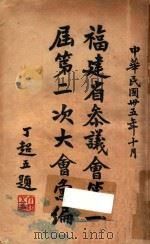 中華民國卅五年十月
福建省參議會第一
屆第二次大會彙編
丁超五題